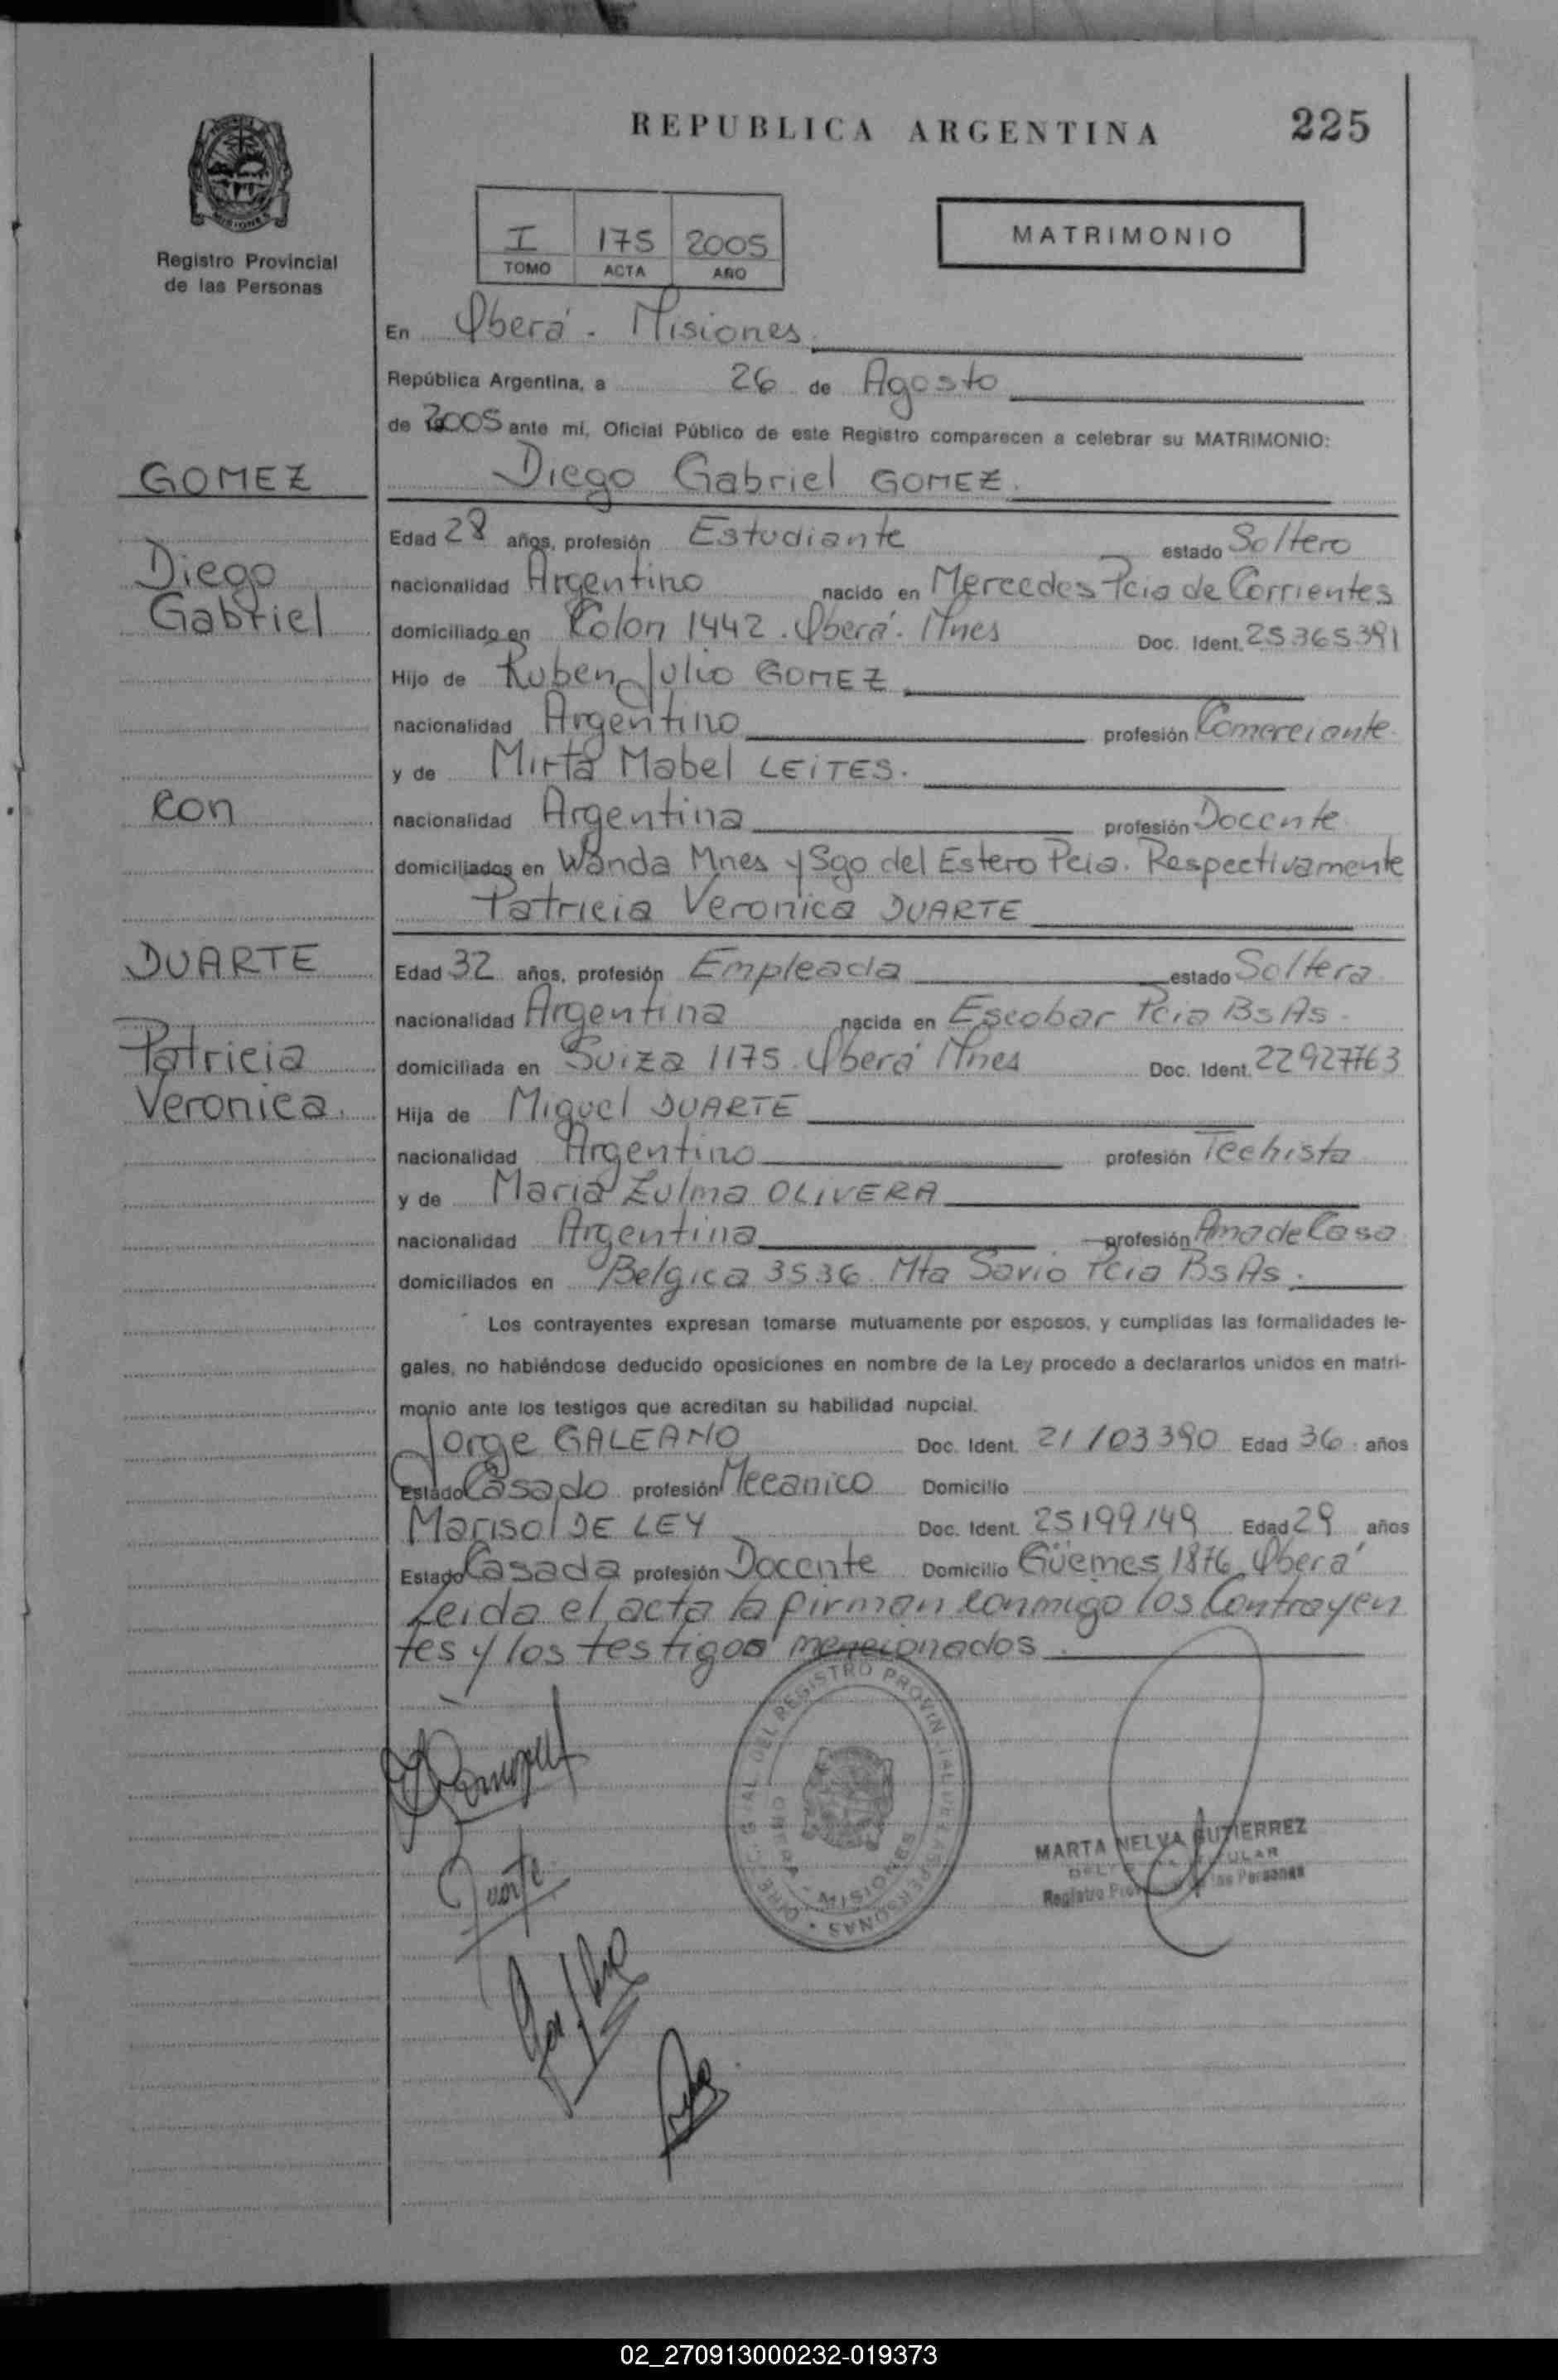 REPUBLICA ARGENTINA
225
Registro Provincial
de las Personas
I 175 2005
TOMO ACTA AÑO
MATRIMONIO
En Oberá - Misiones
República Argentina, a 26 de Agosto
de 2005 ante mí, Oficial Público de este Registro comparecen a celebrar su MATRIMONIO:
GOMEZ
Diego Gabriel GOMEZ
Edad 28 años, profesión Estudiante estado Soltero
Diego
nacionalidad Argentino nacido en Mercedes Pcia de Corrientes
Gabriel
domiciliado en Colon 1442. Oberá. Mnes Doc. Ident. 25365391
Hijo de Ruben Julio GOMEZ
nacionalidad Argentino profesión Comerciante
y de Mirta Mabel LEITES.
con
nacionalidad Argentina profesión Docente
domiciliados en Wanda Mnes y Sgo del Estero Pcia. Respectivamente
Patricia Veronica DUARTE
DUARTE
Edad 32 años, profesión Empleada estado Soltera
nacionalidad Argentina nacida en Escobar Pcia Bs As.
Patricia
domiciliada en Suiza 1175. Oberá Mnes Doc. Ident. 22927763
Veronica.
Hija de Miguel DUARTE
nacionalidad Argentino profesión Techista
y de Maria Zulma OLIVERA
nacionalidad Argentina profesión Ama de Casa
domiciliados en Belgica 3536. Mta Savio Pcia Bs As.
Los contrayentes expresan tomarse mutuamente por esposos, y cumplidas las formalidades le-
gales, no habiéndose deducido oposiciones en nombre de la Ley procedo a declararlos unidos en matri-
monio ante los testigos que acreditan su habilidad nupcial.
Jorge GALEANO Doc. Ident. 21103390 Edad 36 años
Estado Casado profesión Mecanico Domicilio
Marisol DE LEY Doc. Ident. 25199149 Edad 29 años
Estado Casada profesión Docente Domicilio Güemes 1876. Oberá
Leida el acta la firman conmigo los Contrayen
tes y los testigos mencionados.
DEL REGISTRO PROVINCIAL DE LAS PERSONAS
OBERA - MISIONES
MARTA NELVA GUTIERREZ
Registro Provincial de las Personas
02_270913000232-019373